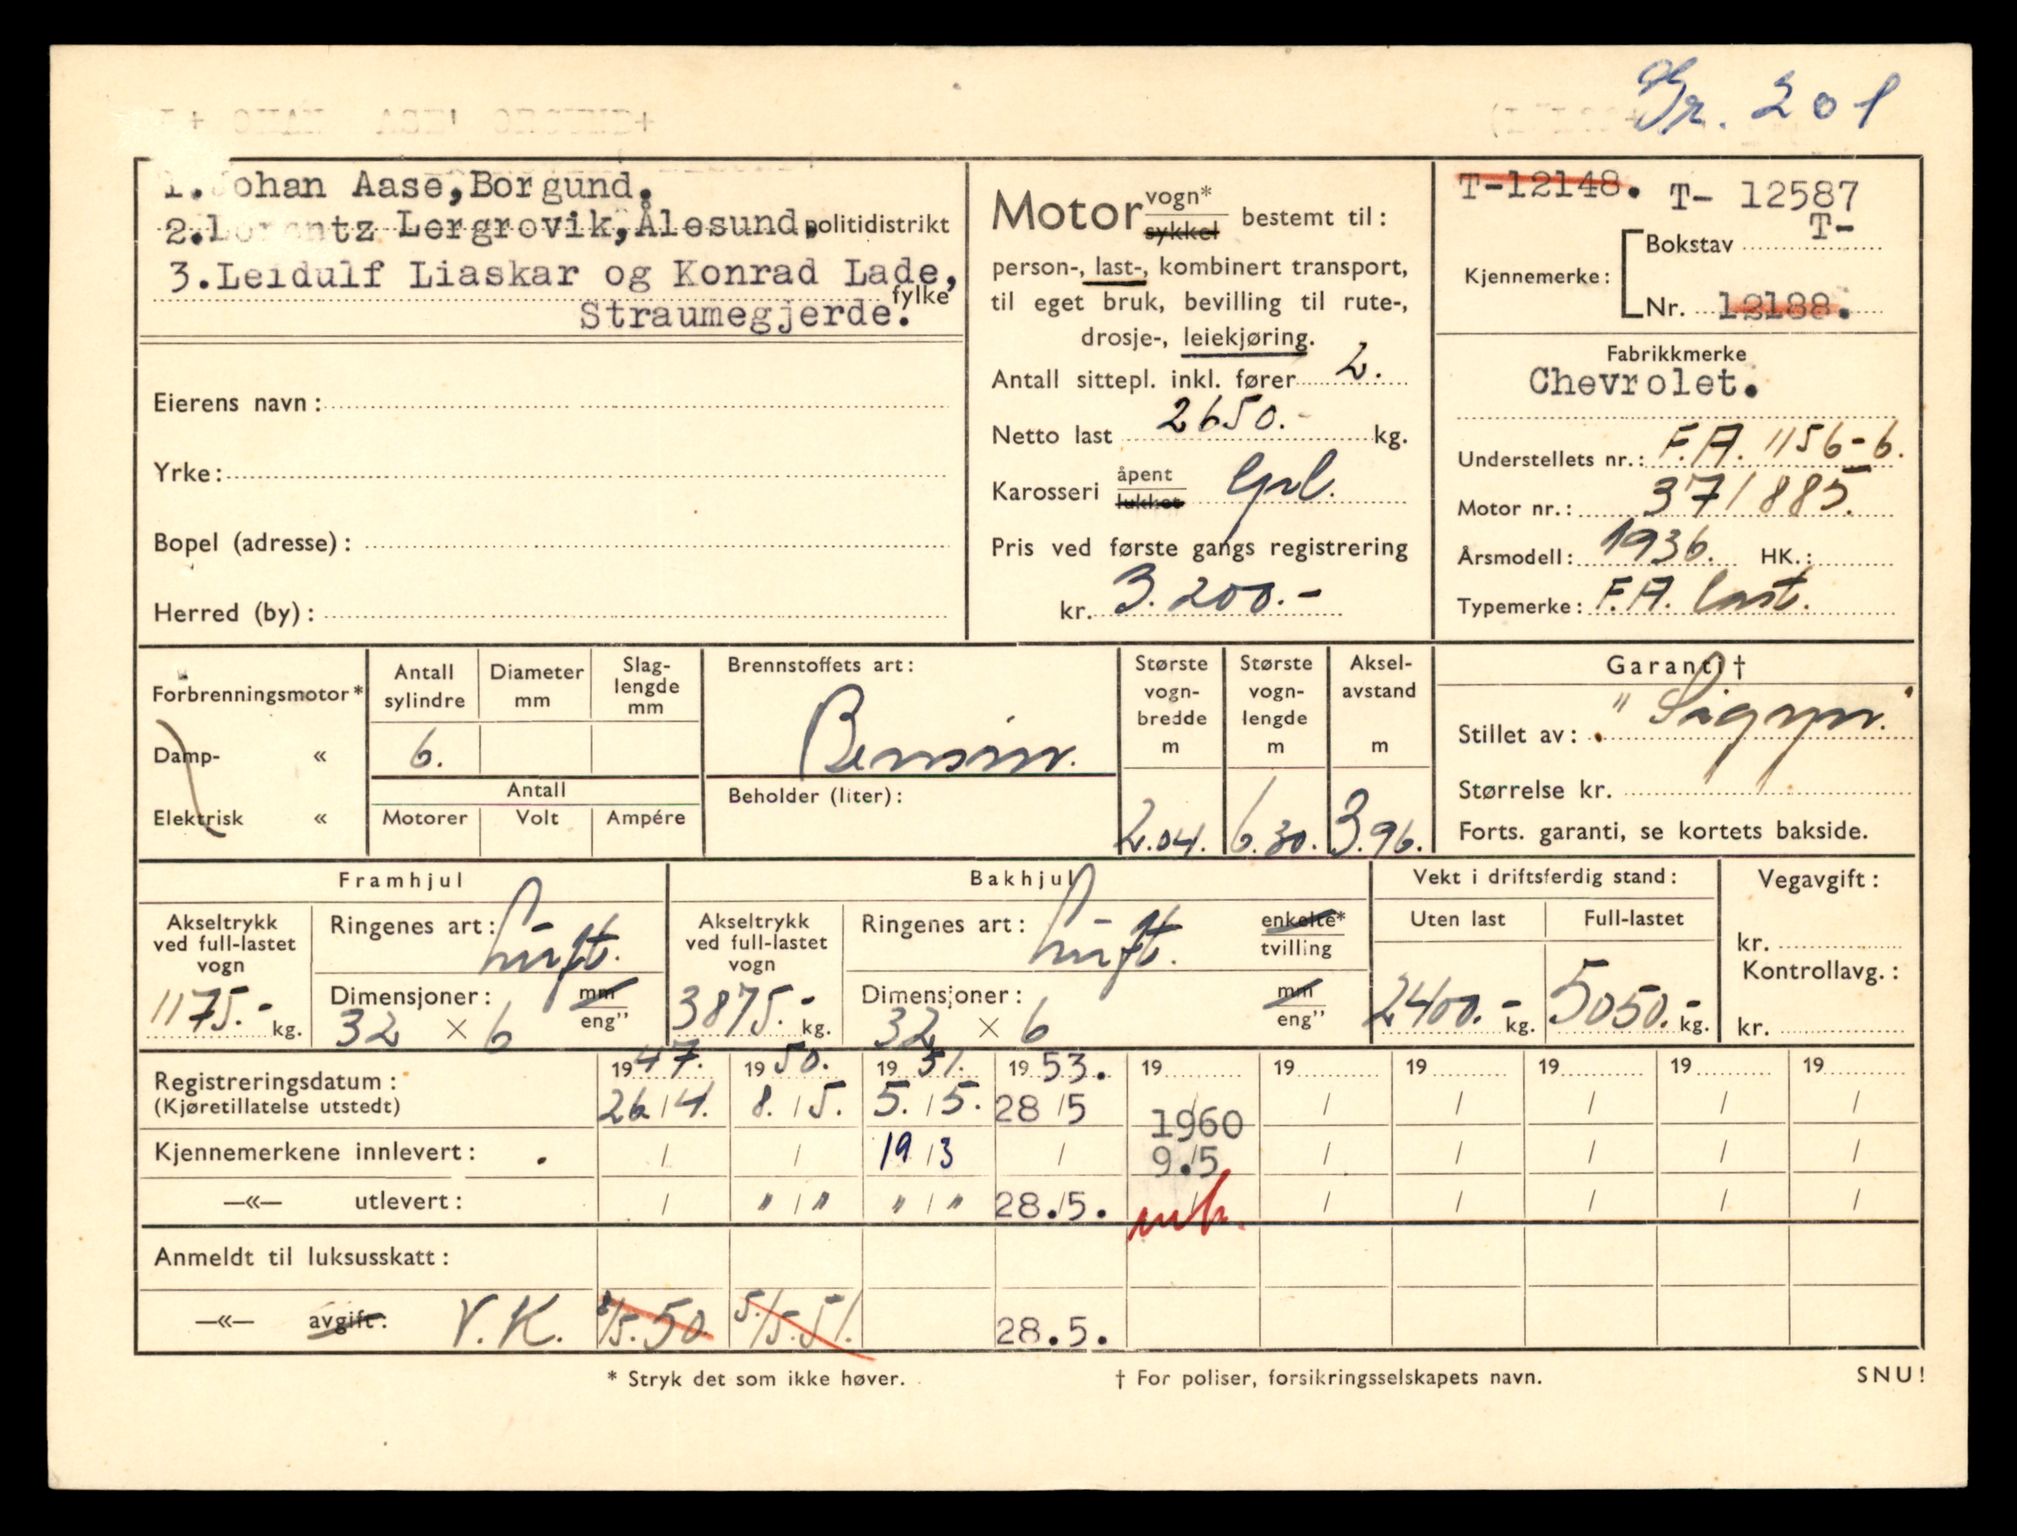 Gr. 201
1. Johan Aase, Borgund.
2. Lorentz Lergrovik, Ålesund. politidistrikt
3. Leidulf Liaskar og Konrad Lade,
fylke
Straumegjerde.
Eierens navn:
Yrke:
Bopel (adresse):
Herred (by):
Motor vogn* sykkel bestemt til:
person-, last-, kombinert transport,
til eget bruk, bevilling til rute-,
drosje-, leiekjøring.
Antall sittepl. inkl. fører 2.
Netto last 2650.- kg.
Karosseri åpent lukket
Pris ved første gangs registrering
kr. 3.200.-
T-12148. T- 12587
Bokstav T-
Kjennemerke:
Nr. 12188.
Fabrikkmerke
Chevrolet.
Understellets nr.: F.A. 1156-6.
Motor nr.: 371885.
Årsmodell: 1936. HK.:
Typemerke: F.A. last.
Forbrenningsmotor*
Damp- «
Elektrisk «
Antall sylindre
6.
Diameter mm
Slag-lengde mm
Antall
Motorer Volt Ampére
Brennstoffets art:
Bensin.
Beholder (liter):
Største vogn-bredde m
2.04.
Største vogn-lengde m
6.30.
Aksel-avstand m
3.96.
Garanti †
Stillet av: "Sigyn."
Størrelse kr.
Forts. garanti, se kortets bakside.
Framhjul
Akseltrykk ved full-lastet vogn
1175.- kg.
Ringenes art: Luft.
Dimensjoner: mm eng"
32 × 6
Bakhjul
Akseltrykk ved full-lastet vogn
3875.- kg.
Ringenes art: Luft. enkelte* tvilling
Dimensjoner: mm eng"
32 × 6
Vekt i driftsferdig stand:
Uten last Full-lastet
2400.- kg. 5050.- kg.
Vegavgift:
kr.
Kontrollavg.:
kr.
1947. 1950. 1951. 1953. 19 19 19 19 19 19
Registreringsdatum:
(Kjøretillatelse utstedt) 26/4. 8./5. 5./5. 28/5 / / / / / /
1960
Kjennemerkene innlevert: / / 19/3 / 9.5 / / / / /
—«— utlevert: / "/" "/" 28./5. / / / / /
Anmeldt til luksusskatt:
—«— avgift: V.K. 8/5.50 5./5.51. 28.5.
* Stryk det som ikke høver.
† For poliser, forsikringsselskapets navn.
SNU!